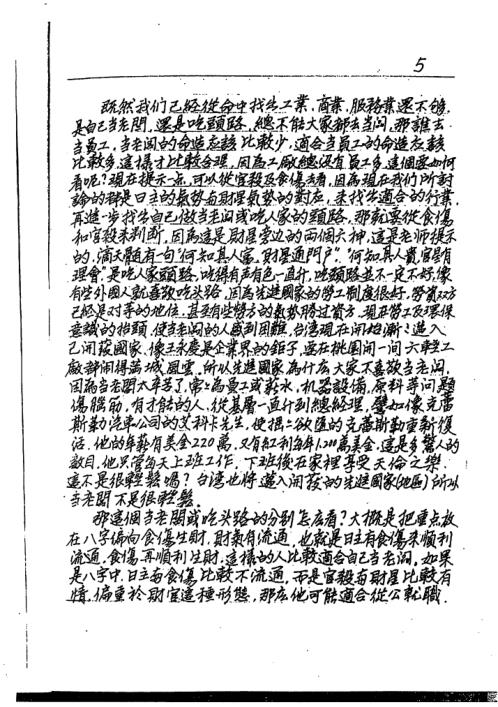 5
既然我们已經從命中找出工業,商業,服務業還不夠,
是自己当老闆,還是吃頭路,總不能大家都去当闆,那誰去
当員工,当老闆的命造应該比較少,適合当員工的命造应該
比較多這樣才比較合理,因為工廠總沒有員工多,這個要如何
看呢?現在提示一点,可以從官殺及食傷去看,因為現在我们所討
論的都是日主的氣勢与財星氣勢的对应,來找出適合的行業,
再進一步找出自己做当老闆或吃人家的頭路,那就要從食傷
和官殺來判断,因為這是財星旁边的兩個六神,這是老师提示
的,滴天髓有一句"何知其人富,財星通門户","何知其人貴,官星有
理會"是吃人家頭路,吃得有声有色一直升,吃頭路並不一定不好,像
有些外國人就喜歡吃头路,因為先進國家的勞工制度很好,勞資双方
已經是对等的地位,甚至有些勞方的氣勢勝过資方,現在勞工及環保
意識的抬頭,使当老闆的人感到困難,台湾現在开始漸漸進入
已闭發國家,像王永慶是企業界的鉅子,要在桃園闭一间六輕工
廠都闹得满城風雲,所以先進國家為什広大家不喜歡当老闆,
因為当老闆太辛苦了,常常為員工或薪水,机器設備,原料等问題
傷腦筋,有才能的人,從基層一直升到總經理,譬如像克萊
斯勒汽車公司的艾科卡先生,使摇摇欲墜的克萊斯勒重新復
活,他的年薪有美金220萬,又有紅利每年1,200萬美金,這是多驚人的
数目,他只管每天上班工作,下班後在家裡享受天倫之樂,
這不是很輕鬆嗎?台湾也将邁入闭發的先進國家(地區)所以
当老闆不是很輕鬆.
那這個当老闆或吃头路的分別怎広看?大概是把重点放
在八字偏向食傷生財,財氣有流通,也就是日主有食傷來順利
流通,食傷再順利生財,這樣的人比較適合自己当老闆,如果
是八字中,日主与食傷比較不流通,而是官殺与財星比較有
情,偏重於財官這種形態,那広他可能適合從公就職.